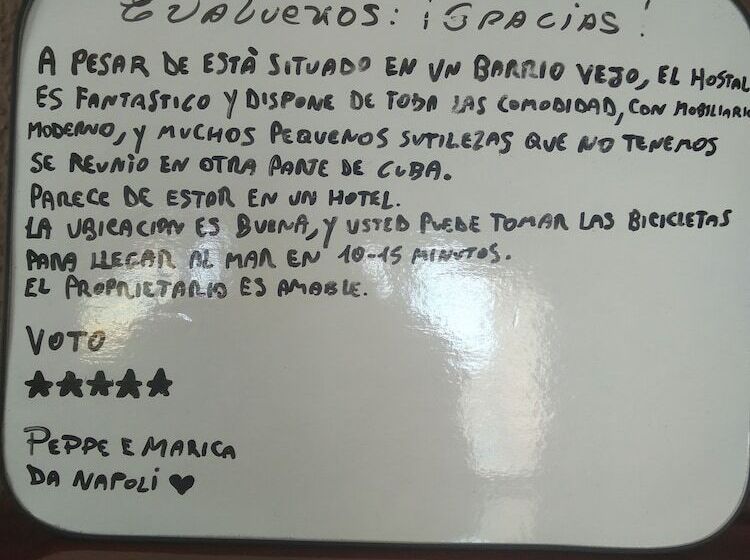 EVALUENOS: ¡GRACIAS!
A PESAR DE ESTÀ SITUADO EN UN BARRIO VEJO, EL HOSTAL
ES FANTASTICO Y DISPONE DE TODA LAS COMODIDAD, CON MOBILIARIO
MODERNO, Y MUCHOS PEQUENOS SUTILEZAS QUE NO TENEMOS
SE REUNIO EN OTRA PARTE DE CUBA.
PARECE DE ESTOR EN UN HOTEL.
LA UBICACION ES BUENA, Y USTED PUEDE TOMAR LAS BICICLETAS
PARA LLEGAR AL MAR EN 10-15 MINUTOS.
EL PROPRIETARIO ES AMABLE.
VOTO
★★★★★
PEPPE E MARICA
DA NAPOLI ♥